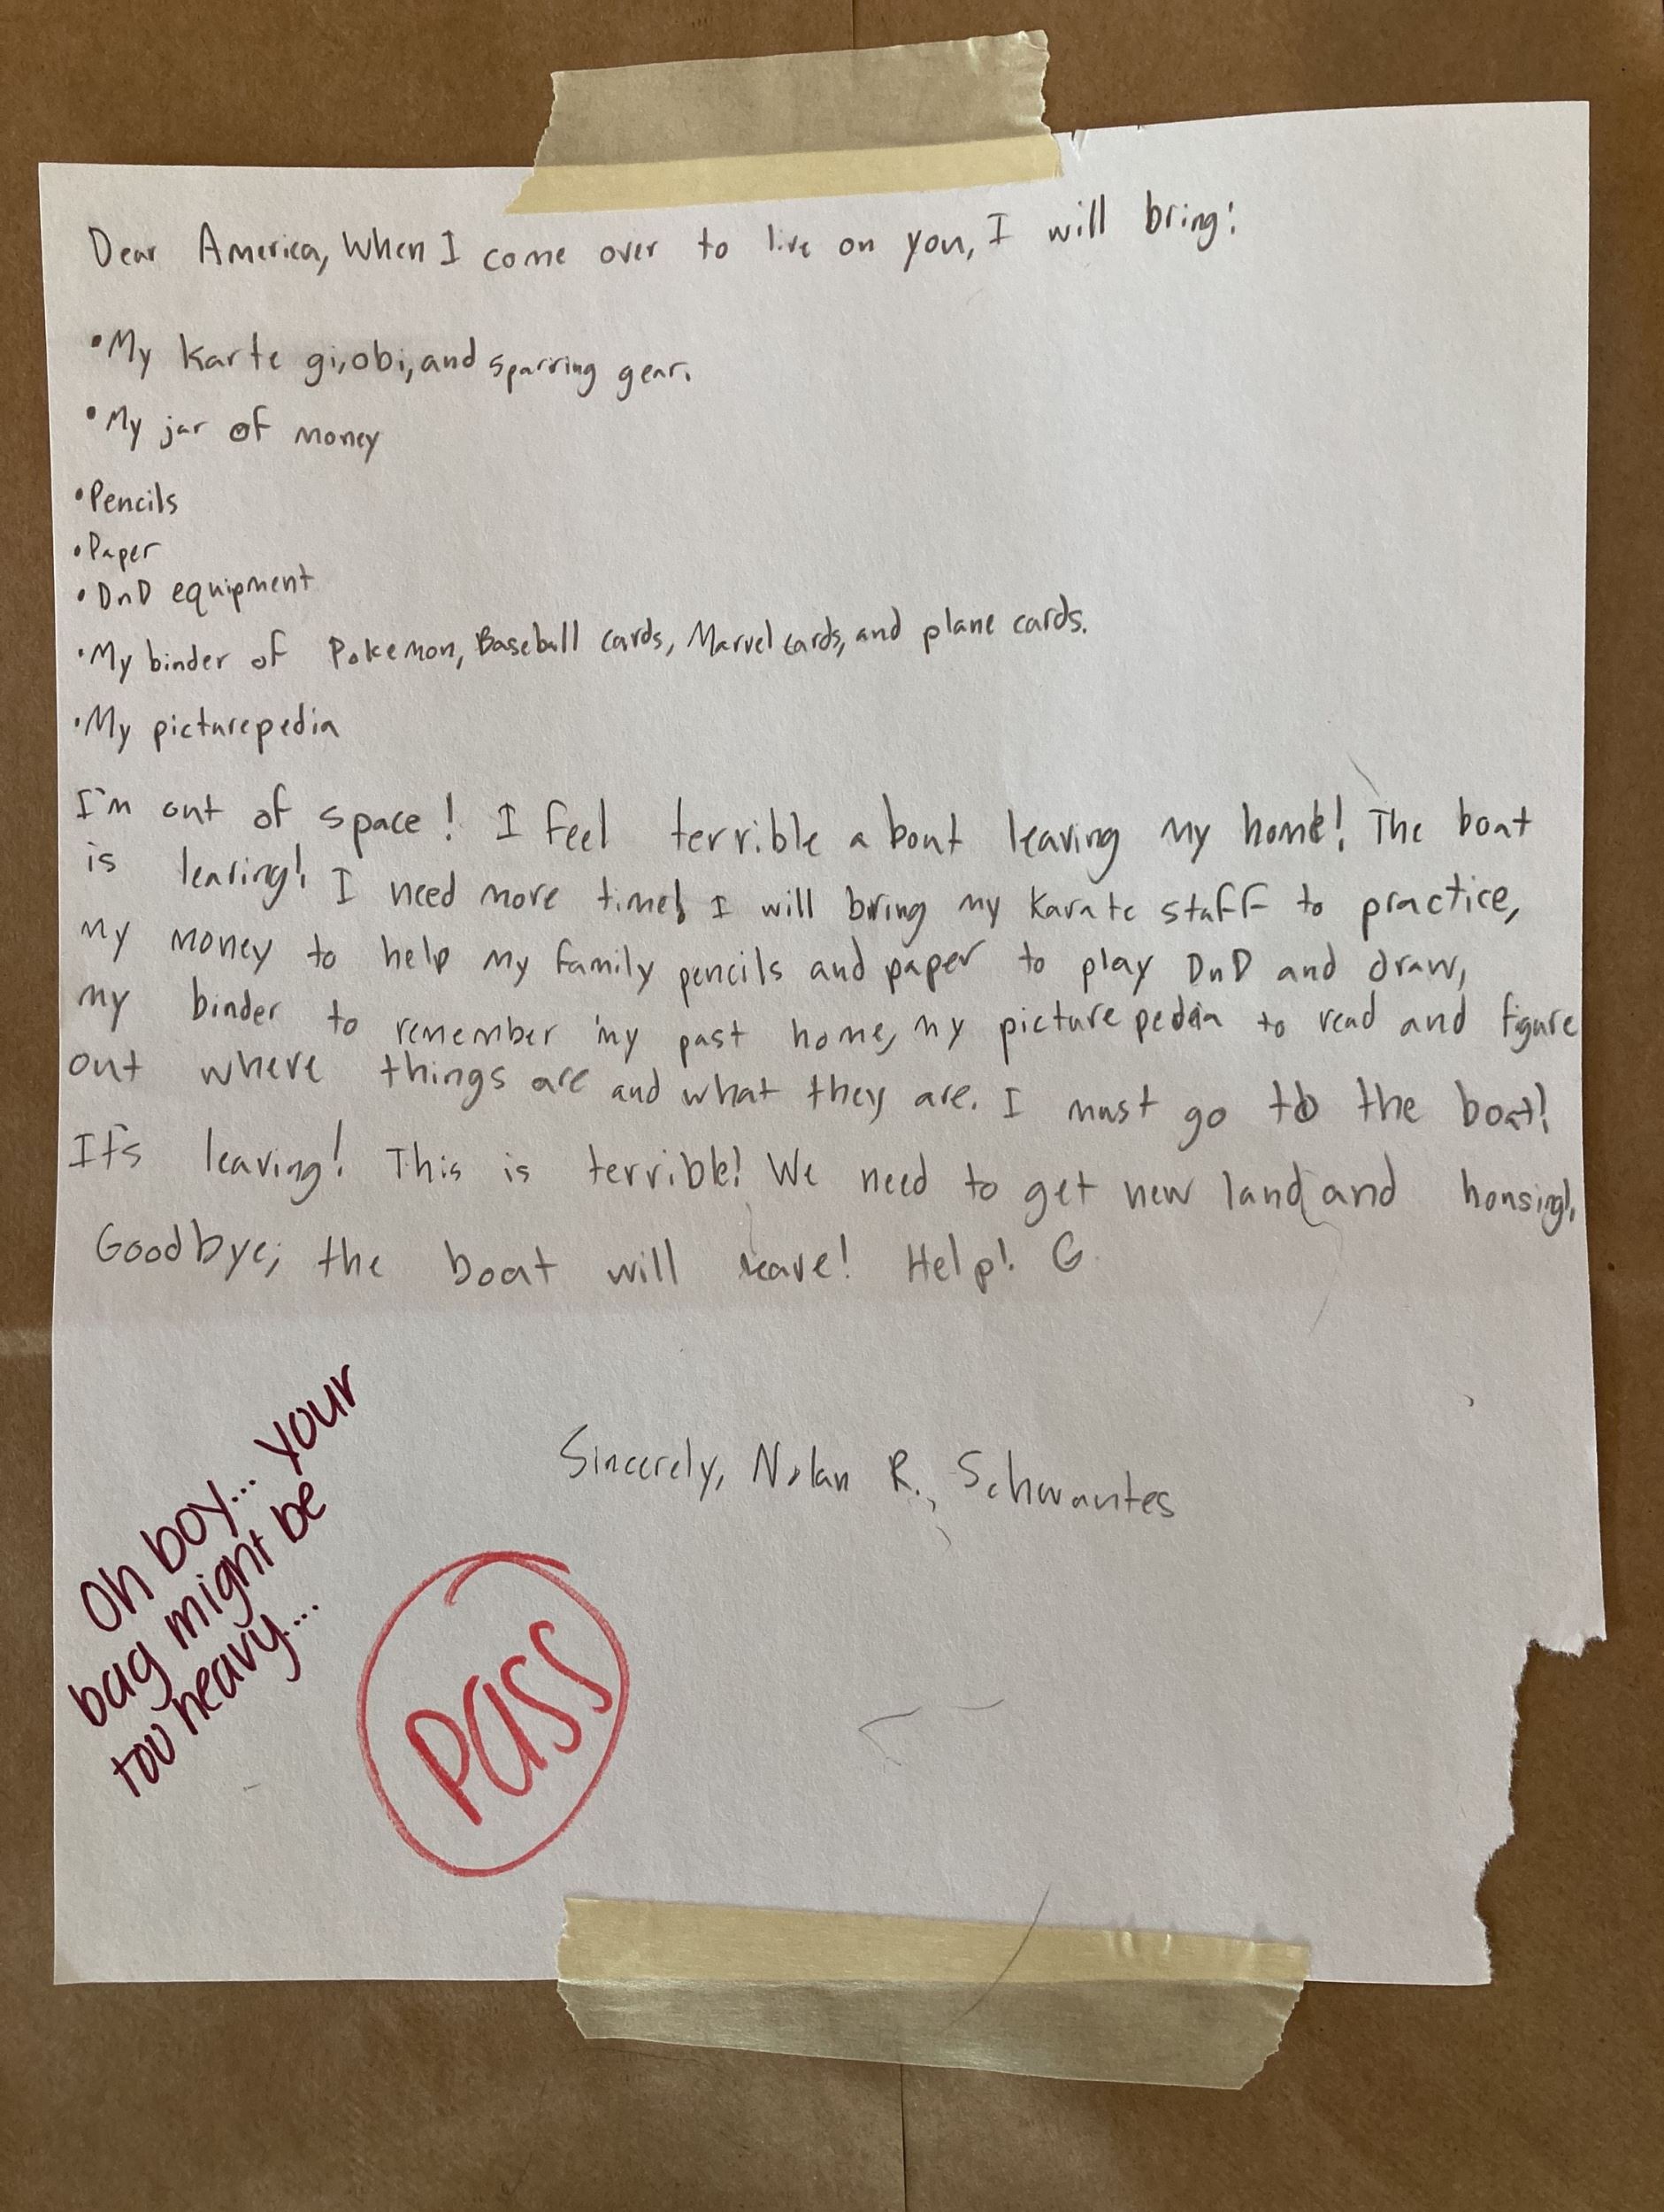 Dear America, When I come over to live on you, I will bring:
•My Karte gi, obi, and sparring gear.
•My jar of money
•Pencils
•Paper
•DnD equipment
•My binder of Pokemon, Baseball cards, Marvel cards, and plane cards.
•My picturepedia
I'm out of space! I feel terrible about leaving my home! The boat
is leaving! I need more time! I will bring my Karate staff to practice,
my money to help my family pencils and paper to play DnD and draw,
my binder to remember my past home, my picturepedia to read and figure
out where things are and what they are. I must go to the boat!
It's leaving! This is terrible! We need to get new land and housing!
Goodbye, the boat will leave! Help! G
Sincerely, Nolan R., Schwantes
Oh boy... your
bag might be
too heavy...
Pass